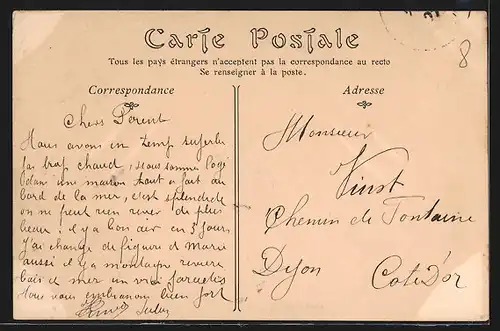 Carte Postale
Tous les pays étrangers n'acceptent pas la correspondance au recto
Se renseigner à la poste.
8
Correspondance
Adresse
Chers Perent
Nous avons un temp superbe
pas trop chaud, nous somme logé
dans une maison tout a fait au
bord de la mer, c'est splendide
on ne peut rien rever de plus
beau, il y a bon air en 3 jours
J'ai change de figure et Marie
aussi il y a montagne riviere
bois et mer un vrai
Nous vous embrassons bien fort
Monsieur
Vinst
Chemin de Fontaine
Dijon
Cote D'or